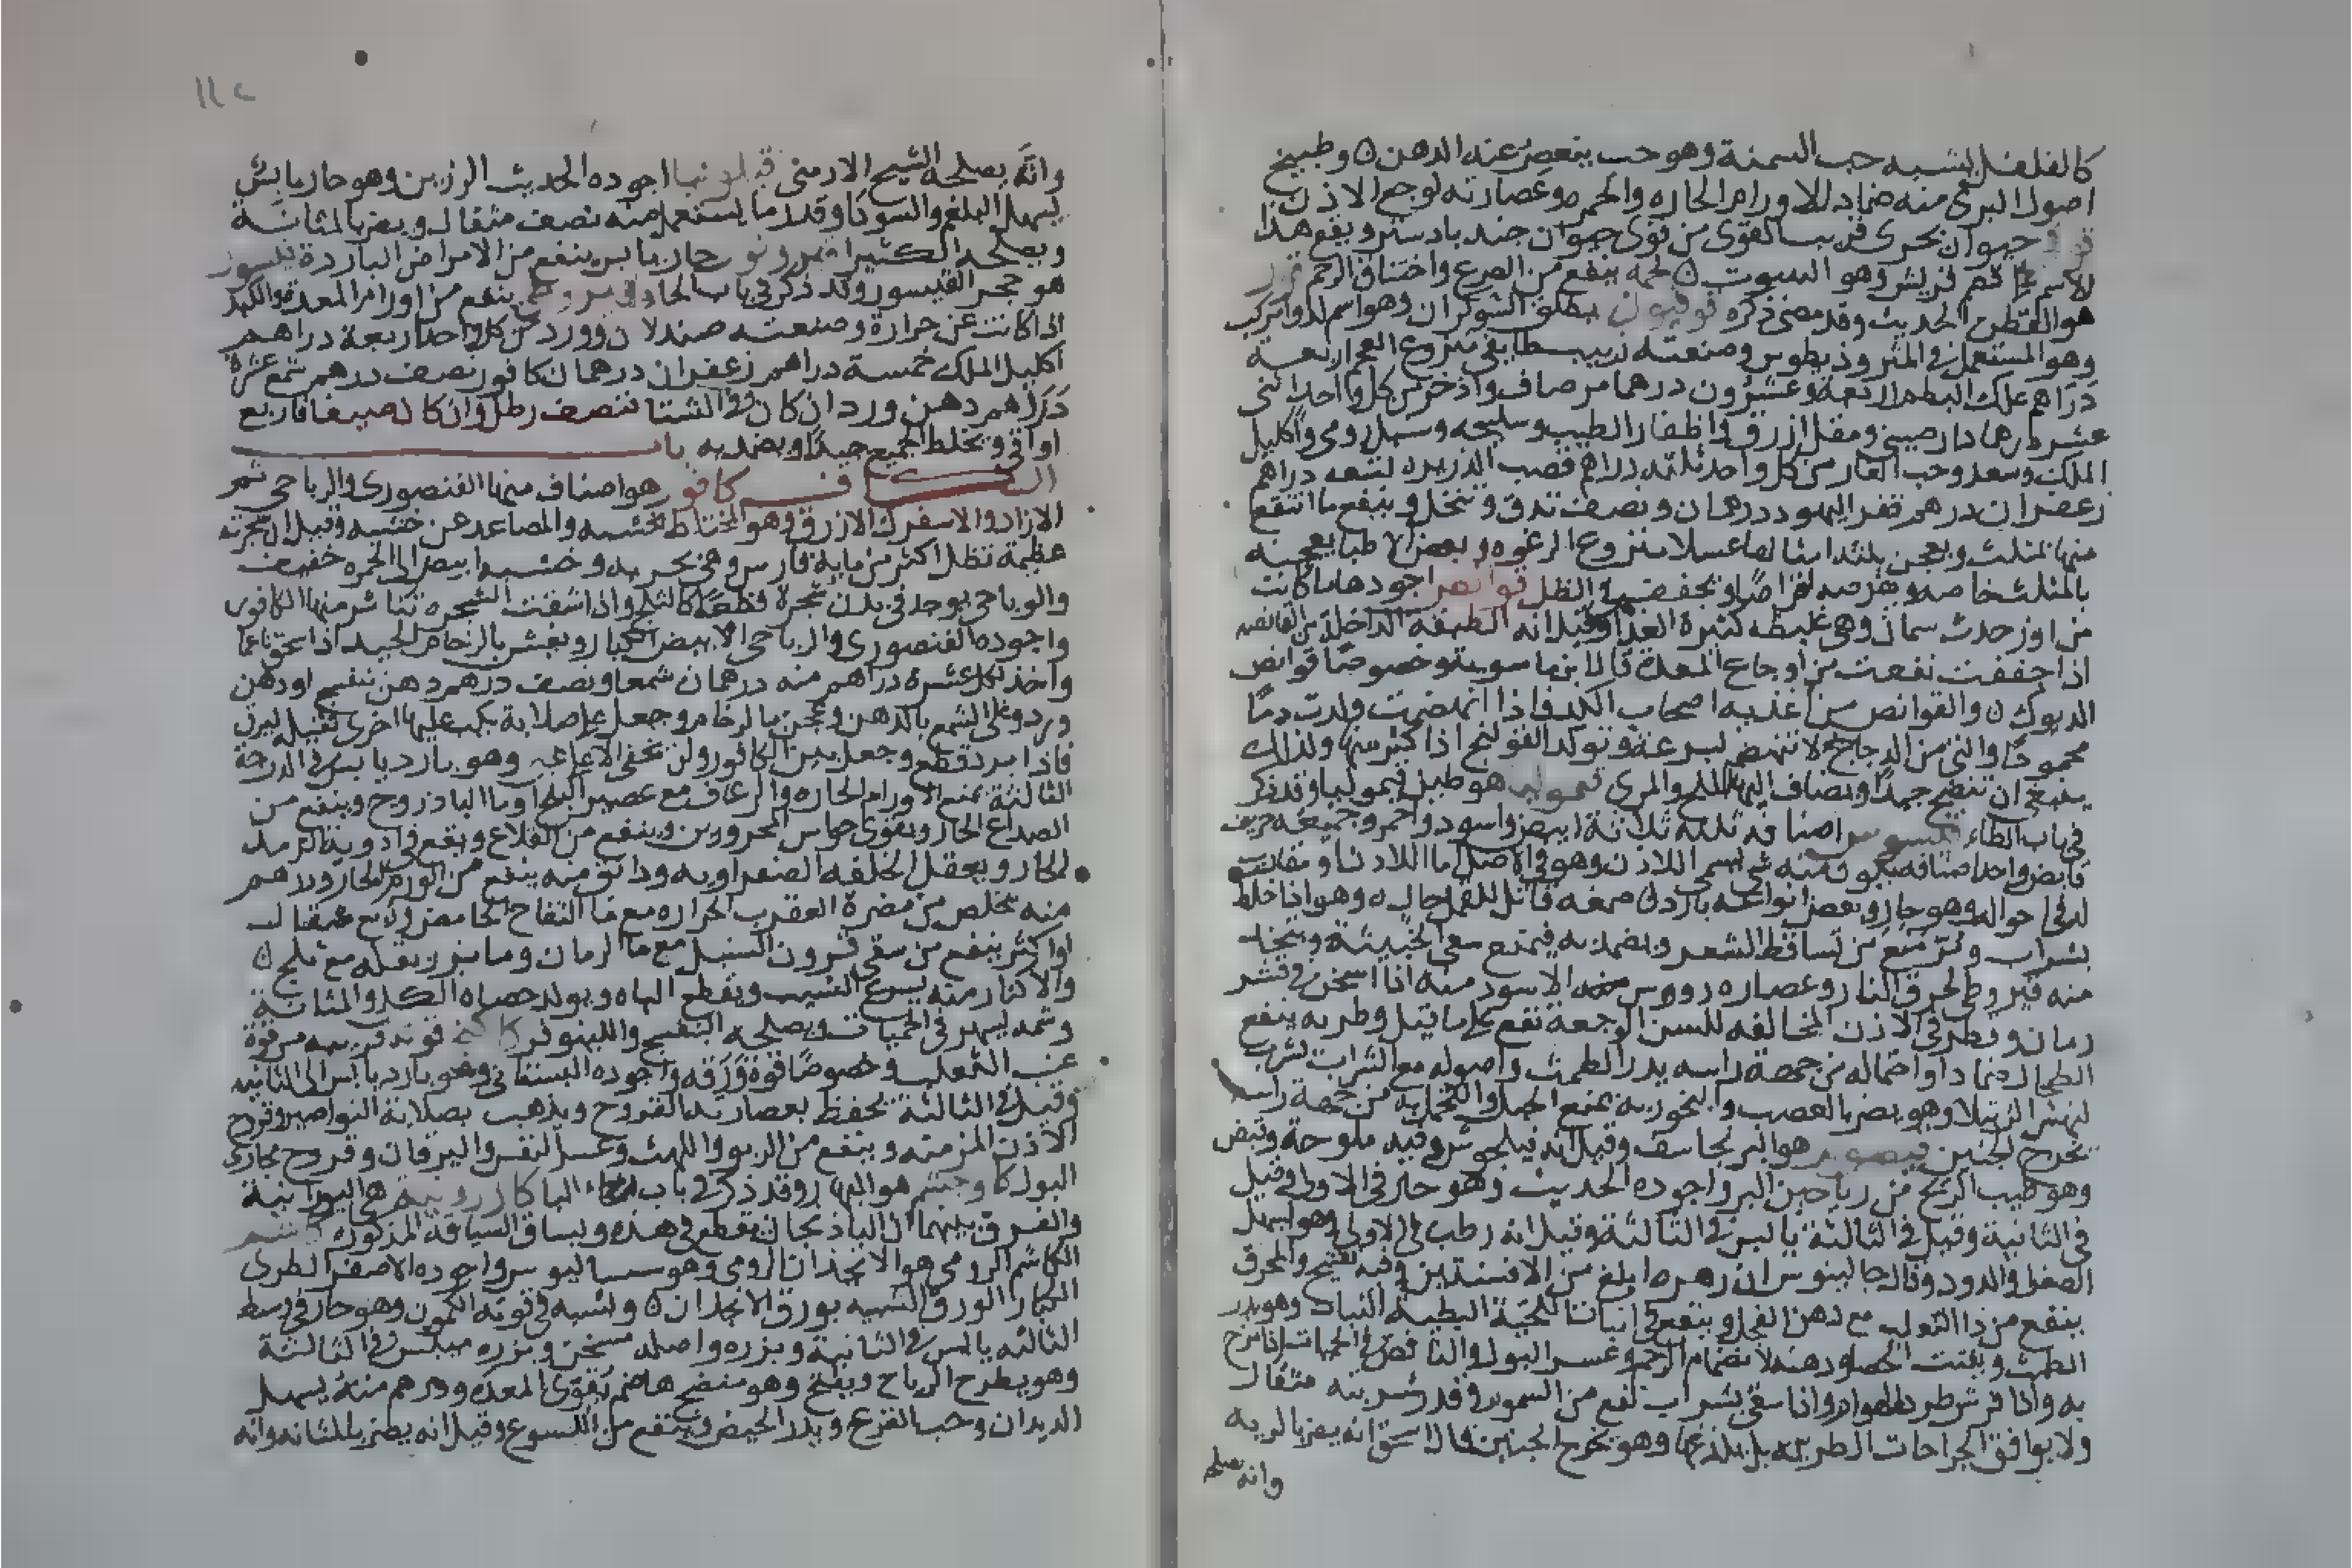 كالفلفل يشبه حب السمنة وهو حب ينعصر عنه الدهن وطبيخ
اصول البري منه ضماد للاورام الحاره والحمره وعصارته لوجع الاذن
حيوان بحري قريب القوى من قوى حيوان جند بادستر ويقع هذا
لحمه ينفع من الصرع واختناق الرحم
هو القطن الحديث وقد مضى ذكره قوفيون يطلق الشوكران وهو اسم لدوا مركب
وهو المستعمل في المثروذيطوس وصنعته زبيب منزوع العجم اربعة
دراهم علك البطم اربعة وعشرون درهما مر صاف واذخر من كل واحد اثنى
عشر درهما دارصيني ومقل ازرق واظفار الطيب وسليخه وسنبل رومي واكليل
الملك وسعد وحب الغار من كل واحد ثلثه دراهم قصب الذريره تسعه دراهم
زعفران درهم قفر اليهود درهمان ونصف تدق وتنخل وينقع ما انتقع
منها بمثلث ويعجن بثلثه امثالها عسلا منزوع الرغوه وبعض الاطبا يعجنه
بالمثلث خاصه ويقرصه اقراصا ويجففه في الظل قوانص اجودها ما كانت
من اوز حدث سمان وهي غليظه كثيرة الغذا وقيل انه الطبقه الداخله من القانصه
اذا جففت نفعت من اوجاع المعدة قال ابن ماسويه وخصوصا قوانص
الديوك والقوانص من اغذيه اصحاب الكد فاذا انهضمت ولدت دما
محمودا والتي من الدجاج لا تنهضم بسرعة وتولد القولنج اذا كثر منها ولذلك
ينبغي ان تنضج جيدا ويضاف اليها الملح والمري قيموليا هو طين قيموليا وقد ذكر
في باب الطاء قيسوس اصنافه ثلثه ثلاثة ابيض واسود واحمر وجميعه حريف
قابض واحد اصنافه يكون منه شي يسمى اللاذن وهو في الاصل
وهو حار وبعض انواعه بارد صمغه قاتل للقمل وهو اذا خلط
بشراب منع من تساقط الشعر ويضمد به فيمنع سعي الخبيثة ويتخذ
منه قيروطي لحرق النار وعصاره رووس الاسود منه اذا اسخن في قشر
رمان وقطر في الاذن المخالفه للسن الوجعة نفع ينفع
الطحال ضمادا واحتماله من جهة راسه يدر الطمث واصوله مع الشراب تشرب
لنهش الرتيلا وهو يضر بالعصب والبخور به يمنع الحبل والتحمل به من جهة راسه
يخرج الجنين قيصوم هو البرنجاسف وقيل انه وفيه ملوحة وقبض
وهو طيب الريح من رياحين البر واجوده الحديث وهو حار في الاولى وقيل
في الثانية وقيل في الثالثة يابس في الثالثة وقيل انه رطب في الاولى وهو يسهل
الصفرا والدود وقال جالينوس ان زهره ابلغ من الافسنتين وفيه تفتيح والمحرق
ينفع من دا الثعلب مع دهن الفجل وينفع في انبات اللحية البطيه النبات وهو يدر
الطمث ويفتت الحصا ودهنه لانضمام الرحم وعسر البول والنافض في الحميات اذا مرخ
به واذا فرش طرد الهوام واذا سقي بشراب نفع من السموم وقدر شربته مثقال
ولا يوافق الجراحات الطريه بل يلذعها وهو يخرج الجنين قال اسحق انه يضر بالريه
وانه يصلحه
١١٢
وانه يصلحه الشيح الارمني اجوده الحديث الرزين وهو حار يابس
يسهل البلغم والسودا وقدر ما يستعمل منه نصف مثقال ويضر بالمثانة
ويصلحه الكثيرا حار يابس ينفع من الامراض الباردة
هو حجر القيسور وقد ذكر في باب الحا ينفع من اورام المعدة والكبد
اذا كانت عن حرارة وصنعته صندلان وورد من كل واحد اربعة دراهم
اكليل الملك خمسة دراهم زعفران درهمان كافور نصف درهم شمع عشرة
دراهم دهن ورد ان كان في الشتا نصف رطل وان كان صيفا فاربع
اواقي ويخلط الجميع جيدا ويضمد به باب
الكاف كافور هو اصناف منها الفنصوري والرباحي ثم
الازاد والاسفرك الازرق وهو المختلط بخشبه والمصاعد عن خشبه وقيل ان شجرته
عظيمة تظل اكثر من مايه فارس وهي بحريه وخشبها ابيض الى الحمره خفيف
والرباحي يوجد في بدن شجرة قطعا كالثلج واذا شققت الشجره تناثر منها الكافور
واجوده الفنصوري والرباحي الابيض الكبار ويغش بالرخام الجيد اذا سحق ناعما
واخذ لكل عشرة دراهم منه درهمان شمعا ونصف درهم دهن بنفسج او دهن
ورد وغلي الشمع بالدهن وعجن بالرخام وجعل على صلاية يكب عليها اخرى ثقيله ليرق
فاذا برد قطع وجعل بين الكافور ولن يخفى الاعلى وهو بارد يابس في الدرجة
الثالثة يمنع الاورام الحاره والرعاف مع عصير البلح او ما الباذروج وينفع من
الصداع الحار ويقوي حواس المحرورين وينفع من القلاع ويقع في ادوية الرمد
الحار ويعقل الخلفه الصفراويه ودانق منه ينفع من الورم الحار ودرهم
منه يخلص من مضرة العقرب الجراره مع ما التفاح الحامض مثقال
او اكثر ينفع من سقي قرون السنبل مع ما الرمان وما بزر بقله مع ثلج
والاكثار منه يسرع الشيب ويقطع الباه ويولد حصاه الكلى والمثانة
وشمه يسهر في الحميات ويصلحه البنفسج والنينوفر كاكنج قوته قريبه من قوة
عنب الثعلب وخصوصا قوة ورقه واجوده البستاني وهو بارد يابس الى الثانيه
وقيل في الثالثة تحفظ بعصارته القروح ويذهب بصلابة النواصير وقروح
الاذن المزمنه وينفع من الربو واللهث وعسر النفس واليرقان وقروح مجاري
البول كاوجشم هو البهار وقد ذكر في باب البا
والفرق بينهما المذكوره كاشم
الكاشم الرومي هو الانجذان الرومي وهو سساليوس واجوده الاصفر الطري
الكبار الورق الشبيه بورق الانجدان ويشبه في قوته الكمون وهو حار في وسط
الثالثه يابس في الثانية وبزره واصله مسخن وبزره ميبس في الثالثة
وهو يطرح الرياح وينفخ وهو منضج هاضم يقوي المعده ودرهم منه يسهل
الديدان وحب القرع ويدر الحيض وينفع من اللسوع وقيل انه يضر بالمثانه وانه